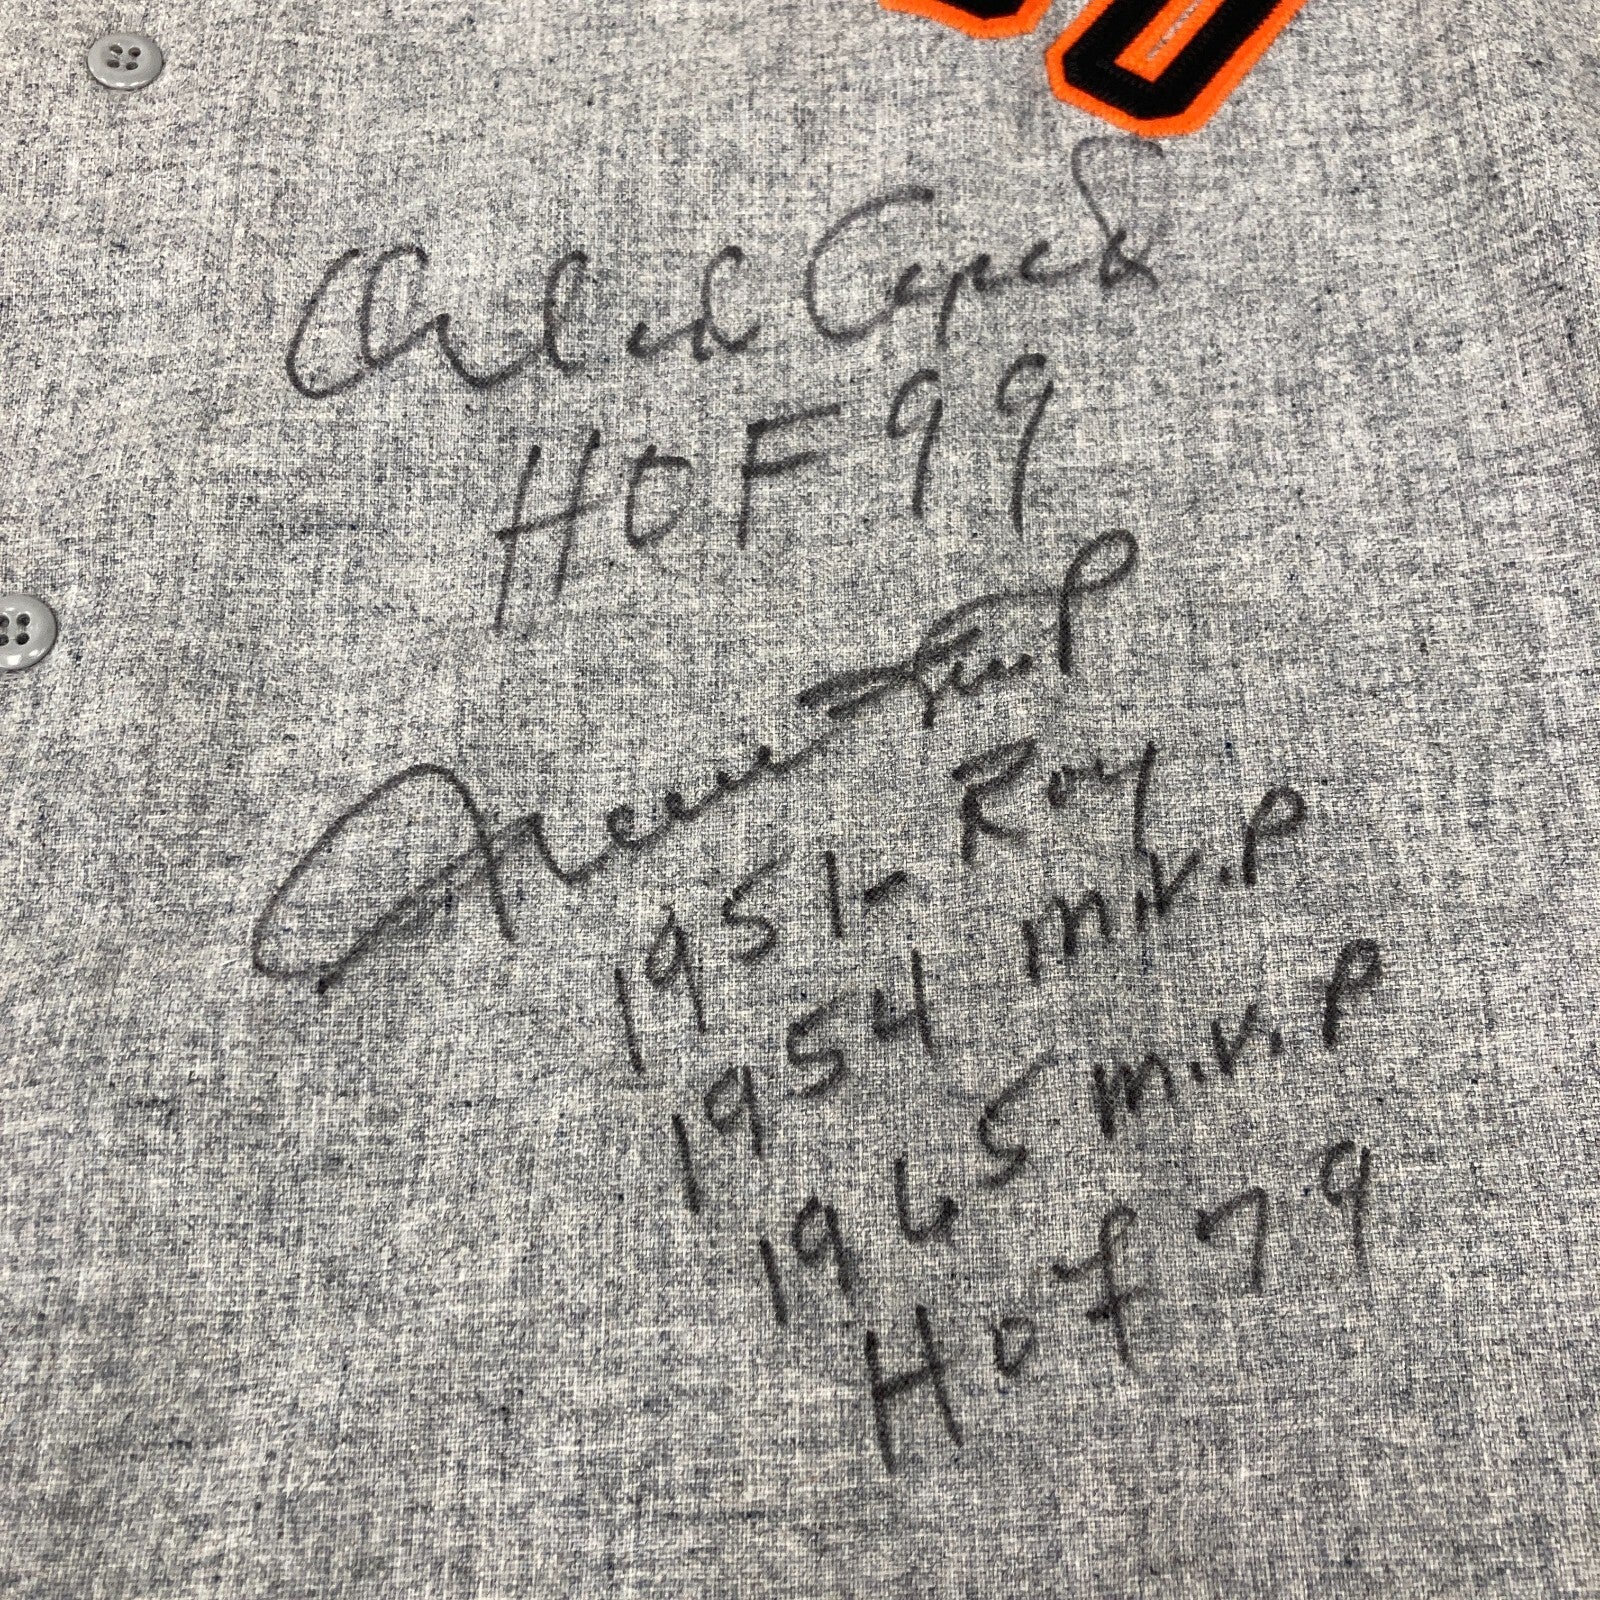 Orlando Cepeda
HOF 99
Willie Mays
1951- Roy
1954 M.V.P
1965 M.V.P
Hof 79